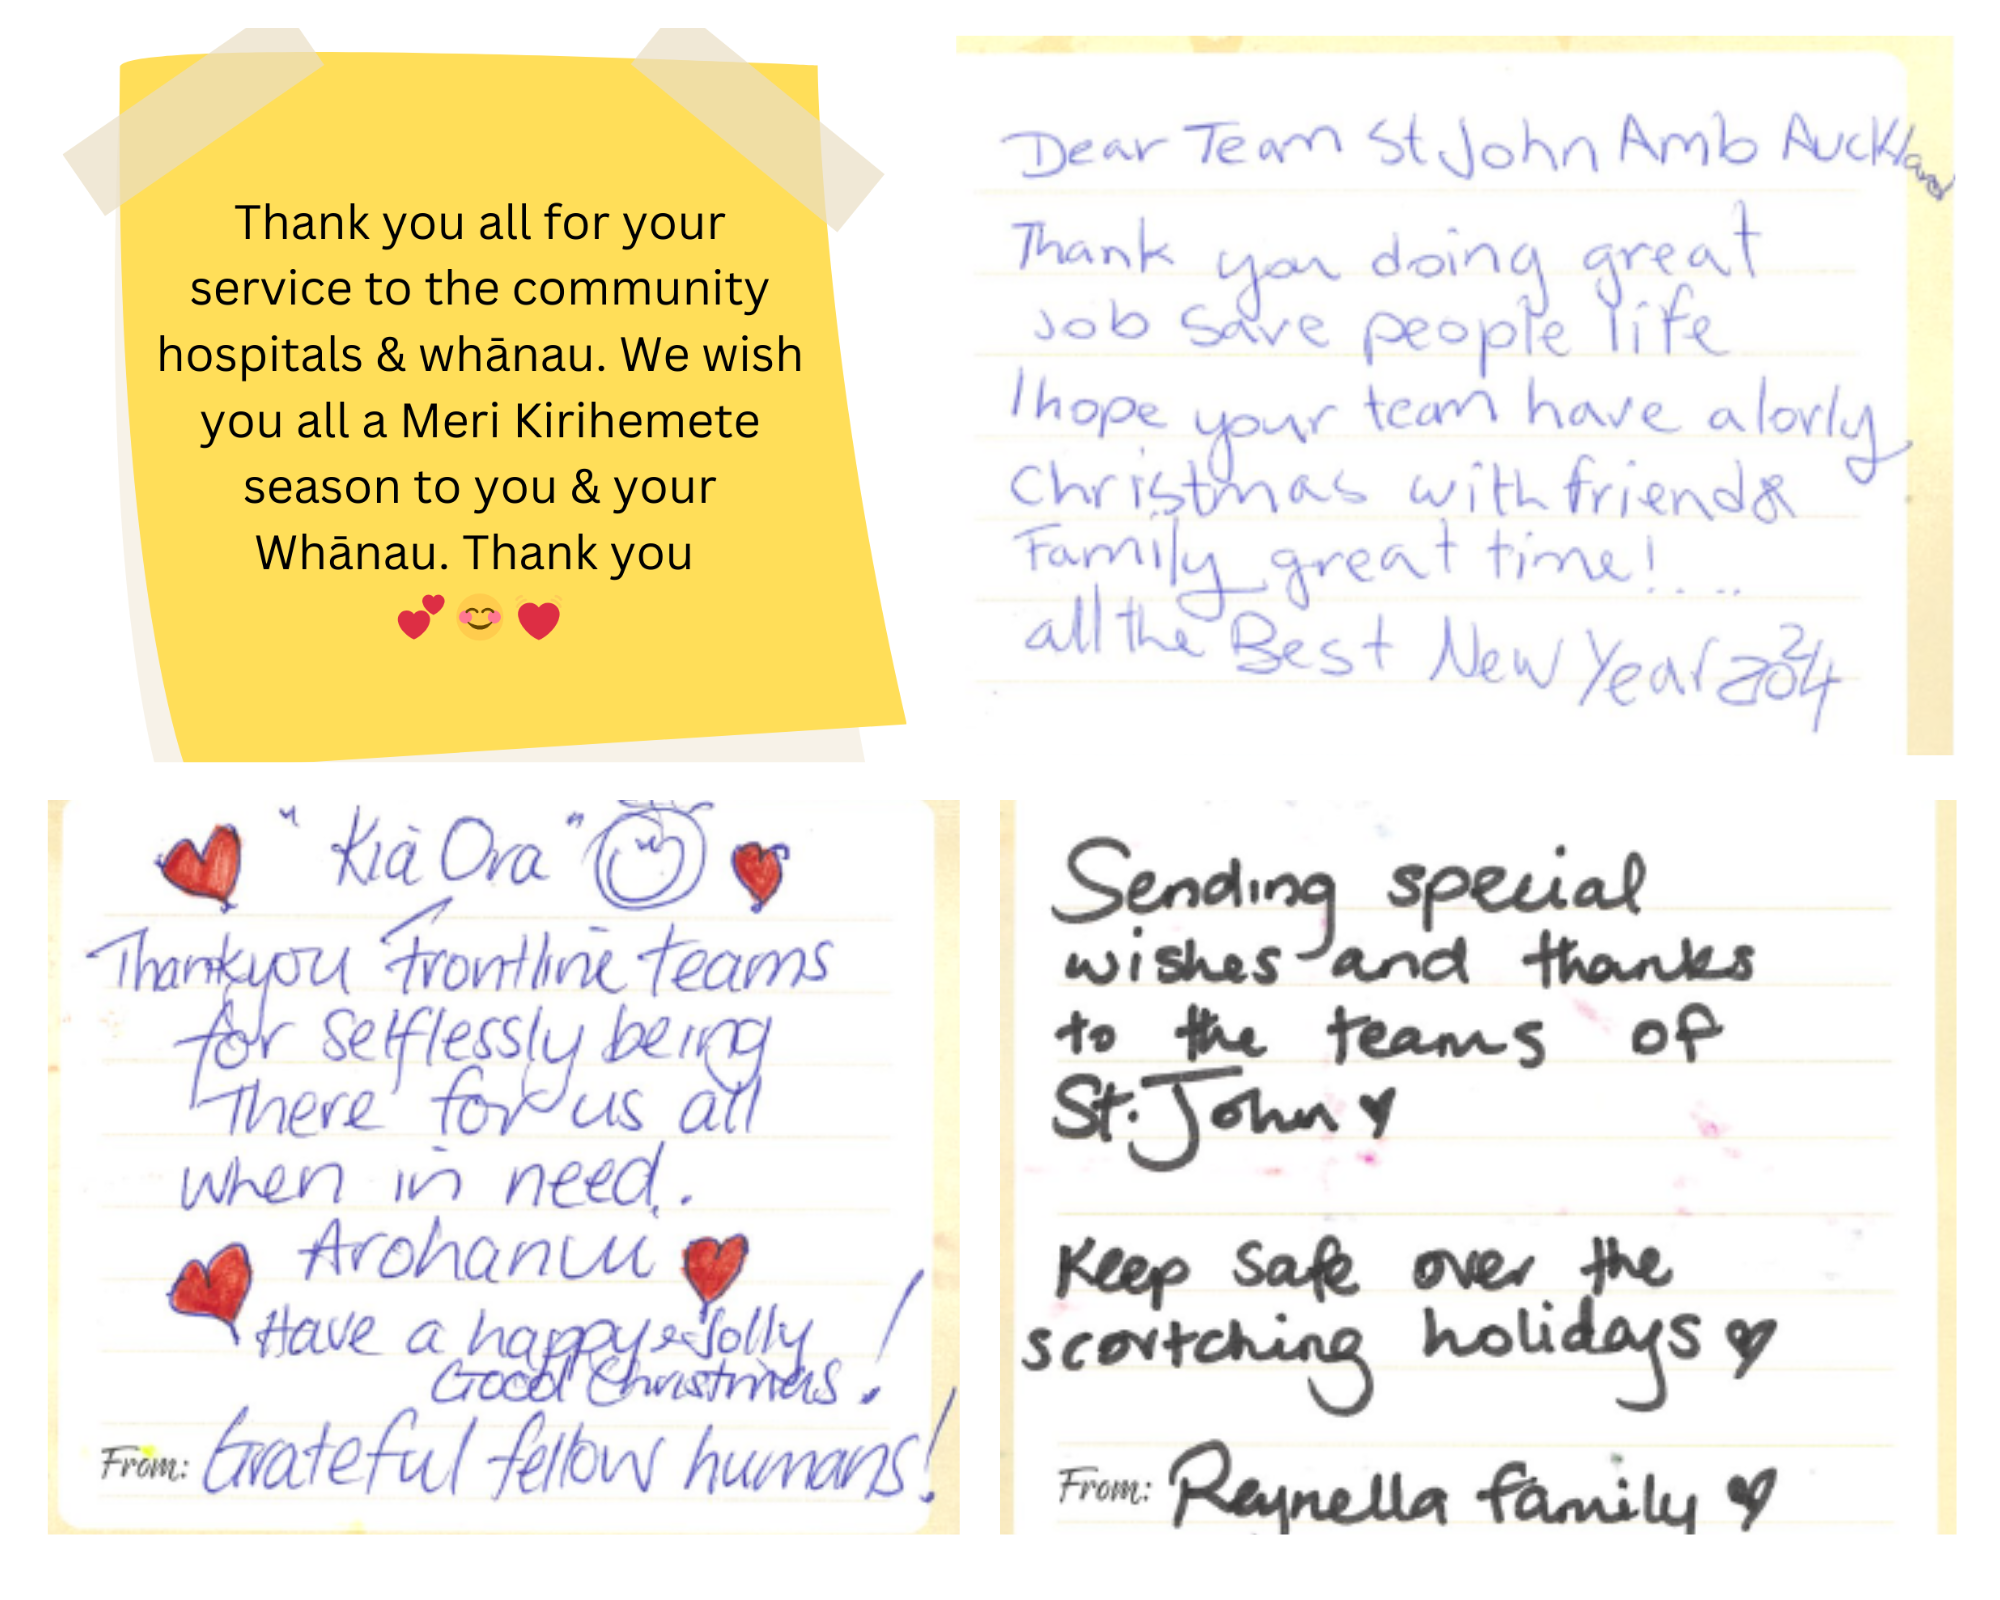 Thank you all for your
service to the community
hospitals & whānau. We wish
you all a Meri Kirihemete
season to you & your
Whānau. Thank you
💕 😊 💓
Dear Team St John Amb Auckland
Thank you doing great
Job Save people life
I hope your team have a lorly
Christmas with friend &
Family great time!....
all the Best New Year 2024
"Kia Ora"
Thankyou frontline teams
for selflessly being
There for us all
when in need.
Arohanui
Have a happy & Jolly
Good Christmas!
From: Grateful fellow humans!
Sending special
wishes and thanks
to the teams of
St. John
Keep safe over the
scortching holidays
From: Reynella family